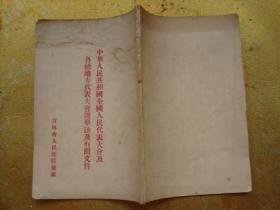 中華人民共和國全國人民代表大會及
各級地方代表大會選舉法及有關文件
吉林省人民法院彙編